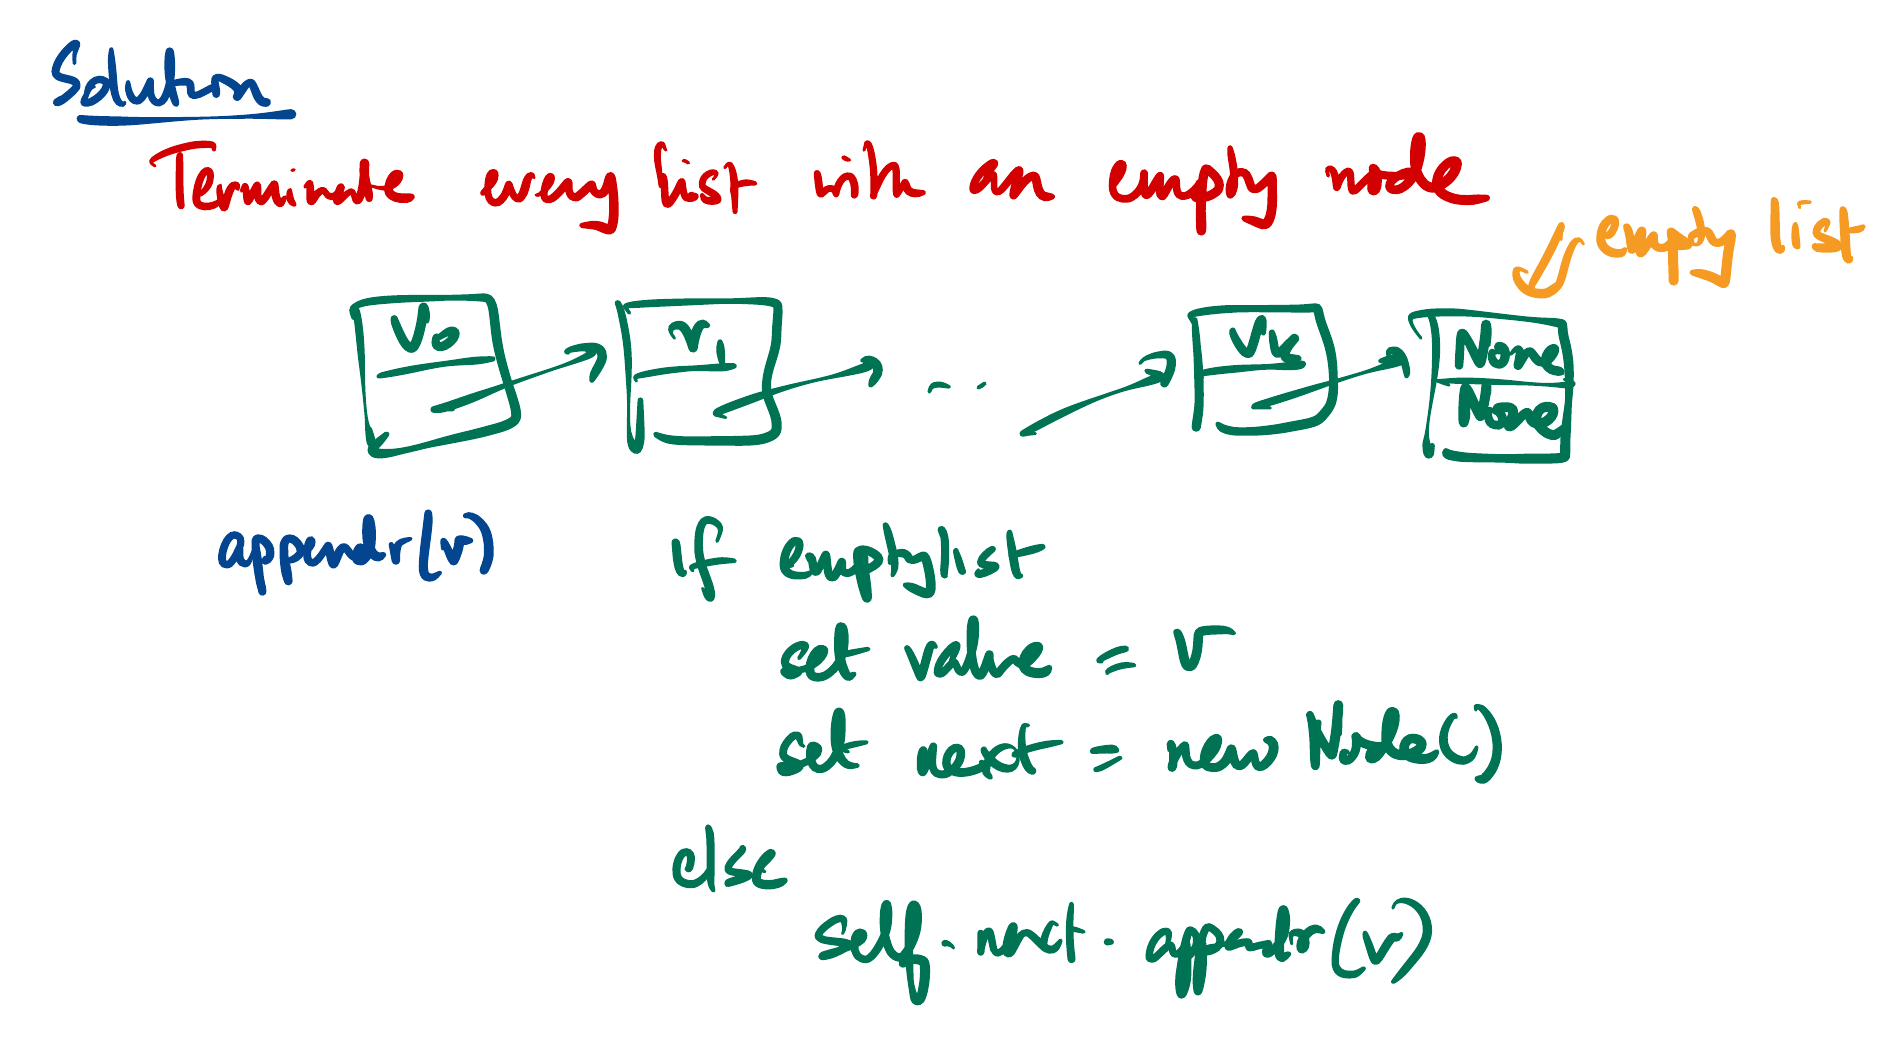 Solution
Terminate every list with an empty node
empty list
V0 v1 .. Vk None
None
appendr(v) if emptylist
set value = v
set next = new Node()
else
self.next.appendr(v)